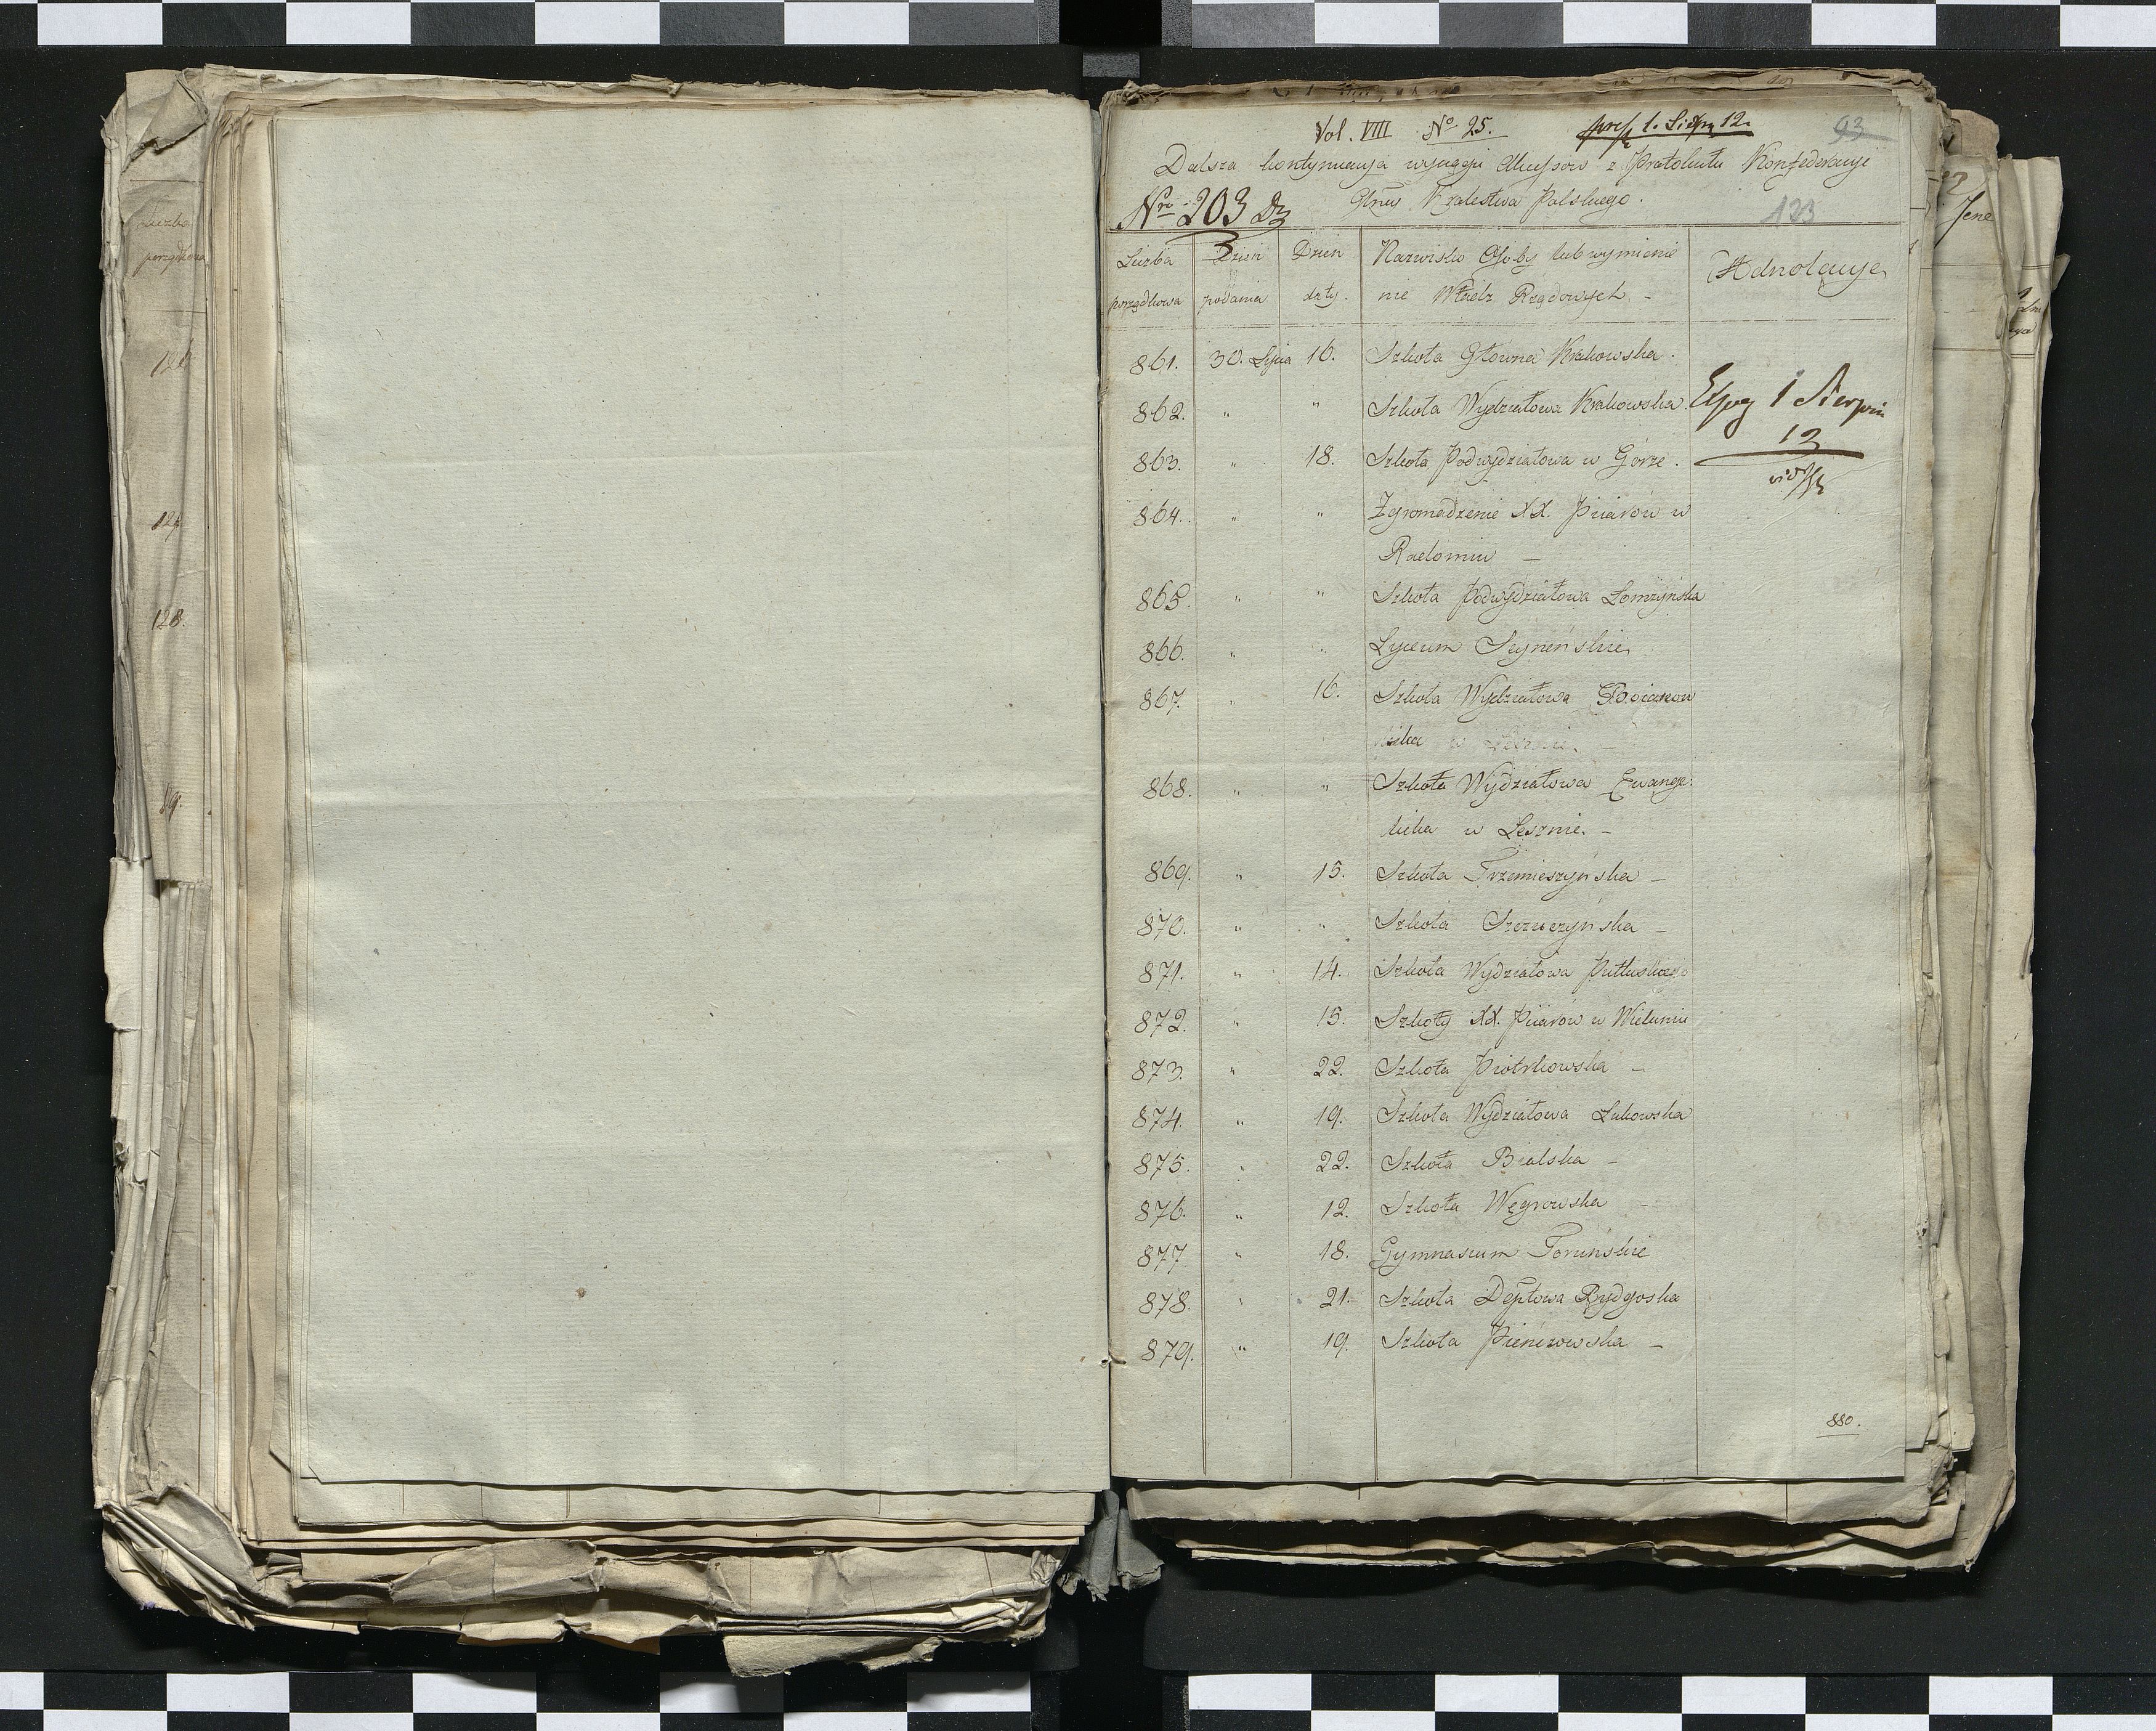 Liczba
porządkowa
126.
127.
128.
Vol. VIII No. 25. 1. Sierp. 12. 93
Dalsza kontynuacya Akcessow z Protokułu Konfederacyi
Nro 203 Głney Krolestwa Polskiego. 123
Liczba Dzień Dzień Nazwisko Osoby lub wymienie Adnotacye
porządkowa podania daty. nie Władz Rządowych -
861. 30. Lipca 16. Szkoła Głowna Krakowska.
862. " " Szkoła Wydziałowa Krakowska. 1 Sierpn
12
863. " 18. Szkoła Podwydziałowa w Górze.
864. " " Zgromadzenie XX. Piiarow w
Radomiu -
865. " " Szkoła Podwydziałowa Łomżyńska
866. " " Lyceum Seyneńskie
867. " 16. Szkoła Wydziałowa
868. " " Szkoła Wydziałowa Ewange:
licka w Lesznie. -
869. " 15. Szkoła Trzemieszyńska -
870. " " Szkoła Szczuczyńska -
871. " 14. Szkoła Wydziałowa
872. " 15. Szkoły XX. Piiarow w Wieluniu
873. " 22. Szkoła Piotrkowska -
874. " 19. Szkoła Wydziałowa Łukowska
875. " 22. Szkoła Bialska -
876. " 12. Szkoła Węgrowska
877 " 18. Gymnasium Toruńskie
878. " 21. Szkoła Deptowa Bydgoska
879. " 19. Szkoła -
880.